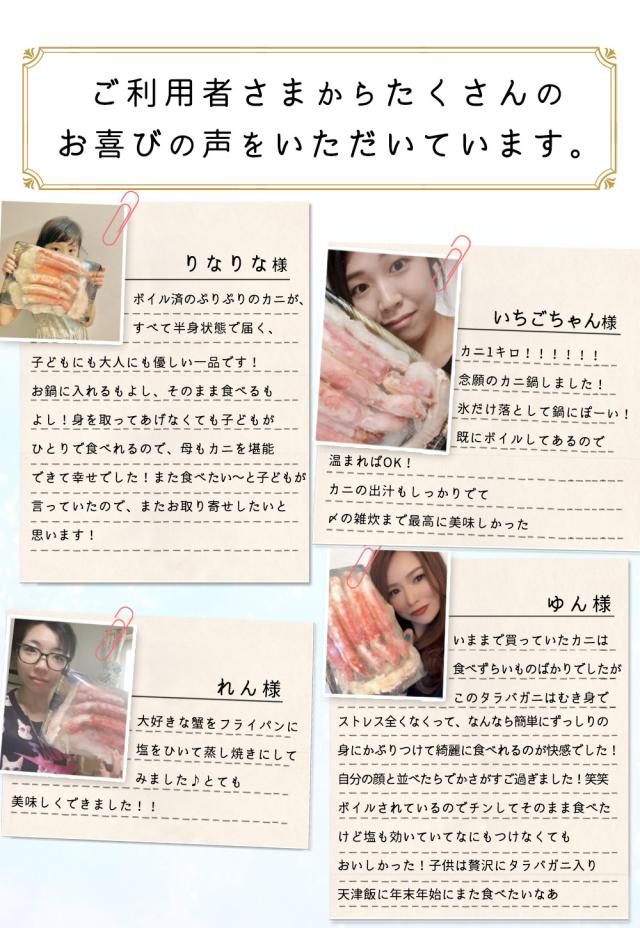 ご利用者さまからたくさんの
お喜びの声をいただいています。
りなりな様
ボイル済のぷりぷりのカニが、
すべて半身状態で届く、
子どもにも大人にも優しい一品です！
お鍋に入れるもよし、そのまま食べるも
よし！身を取ってあげなくても子どもが
ひとりで食べれるので、母もカニを堪能
できて幸せでした！また食べたい〜と子どもが
言っていたので、またお取り寄せしたいと
思います！
いちごちゃん様
カニ1キロ！！！！！！
念願のカニ鍋しました！
氷だけ落として鍋にぽーい！
既にボイルしてあるので
温まればOK！
カニの出汁もしっかりでて
〆の雑炊まで最高に美味しかった
れん様
大好きな蟹をフライパンに
塩をひいて蒸し焼きにして
みました♪とても
美味しくできました！！
ゆん様
いままで買っていたカニは
食べずらいものばかりでしたが
このタラバガニはむき身で
ストレス全くなくって、なんなら簡単にずっしりの
身にかぶりつけて綺麗に食べれるのが快感でした！
自分の顔と並べたらでかさがすご過ぎました！笑笑
ボイルされているのでチンしてそのまま食べた
けど塩も効いていてなにもつけなくても
おいしかった！子供は贅沢にタラバガニ入り
天津飯に年末年始にまた食べたいなあ